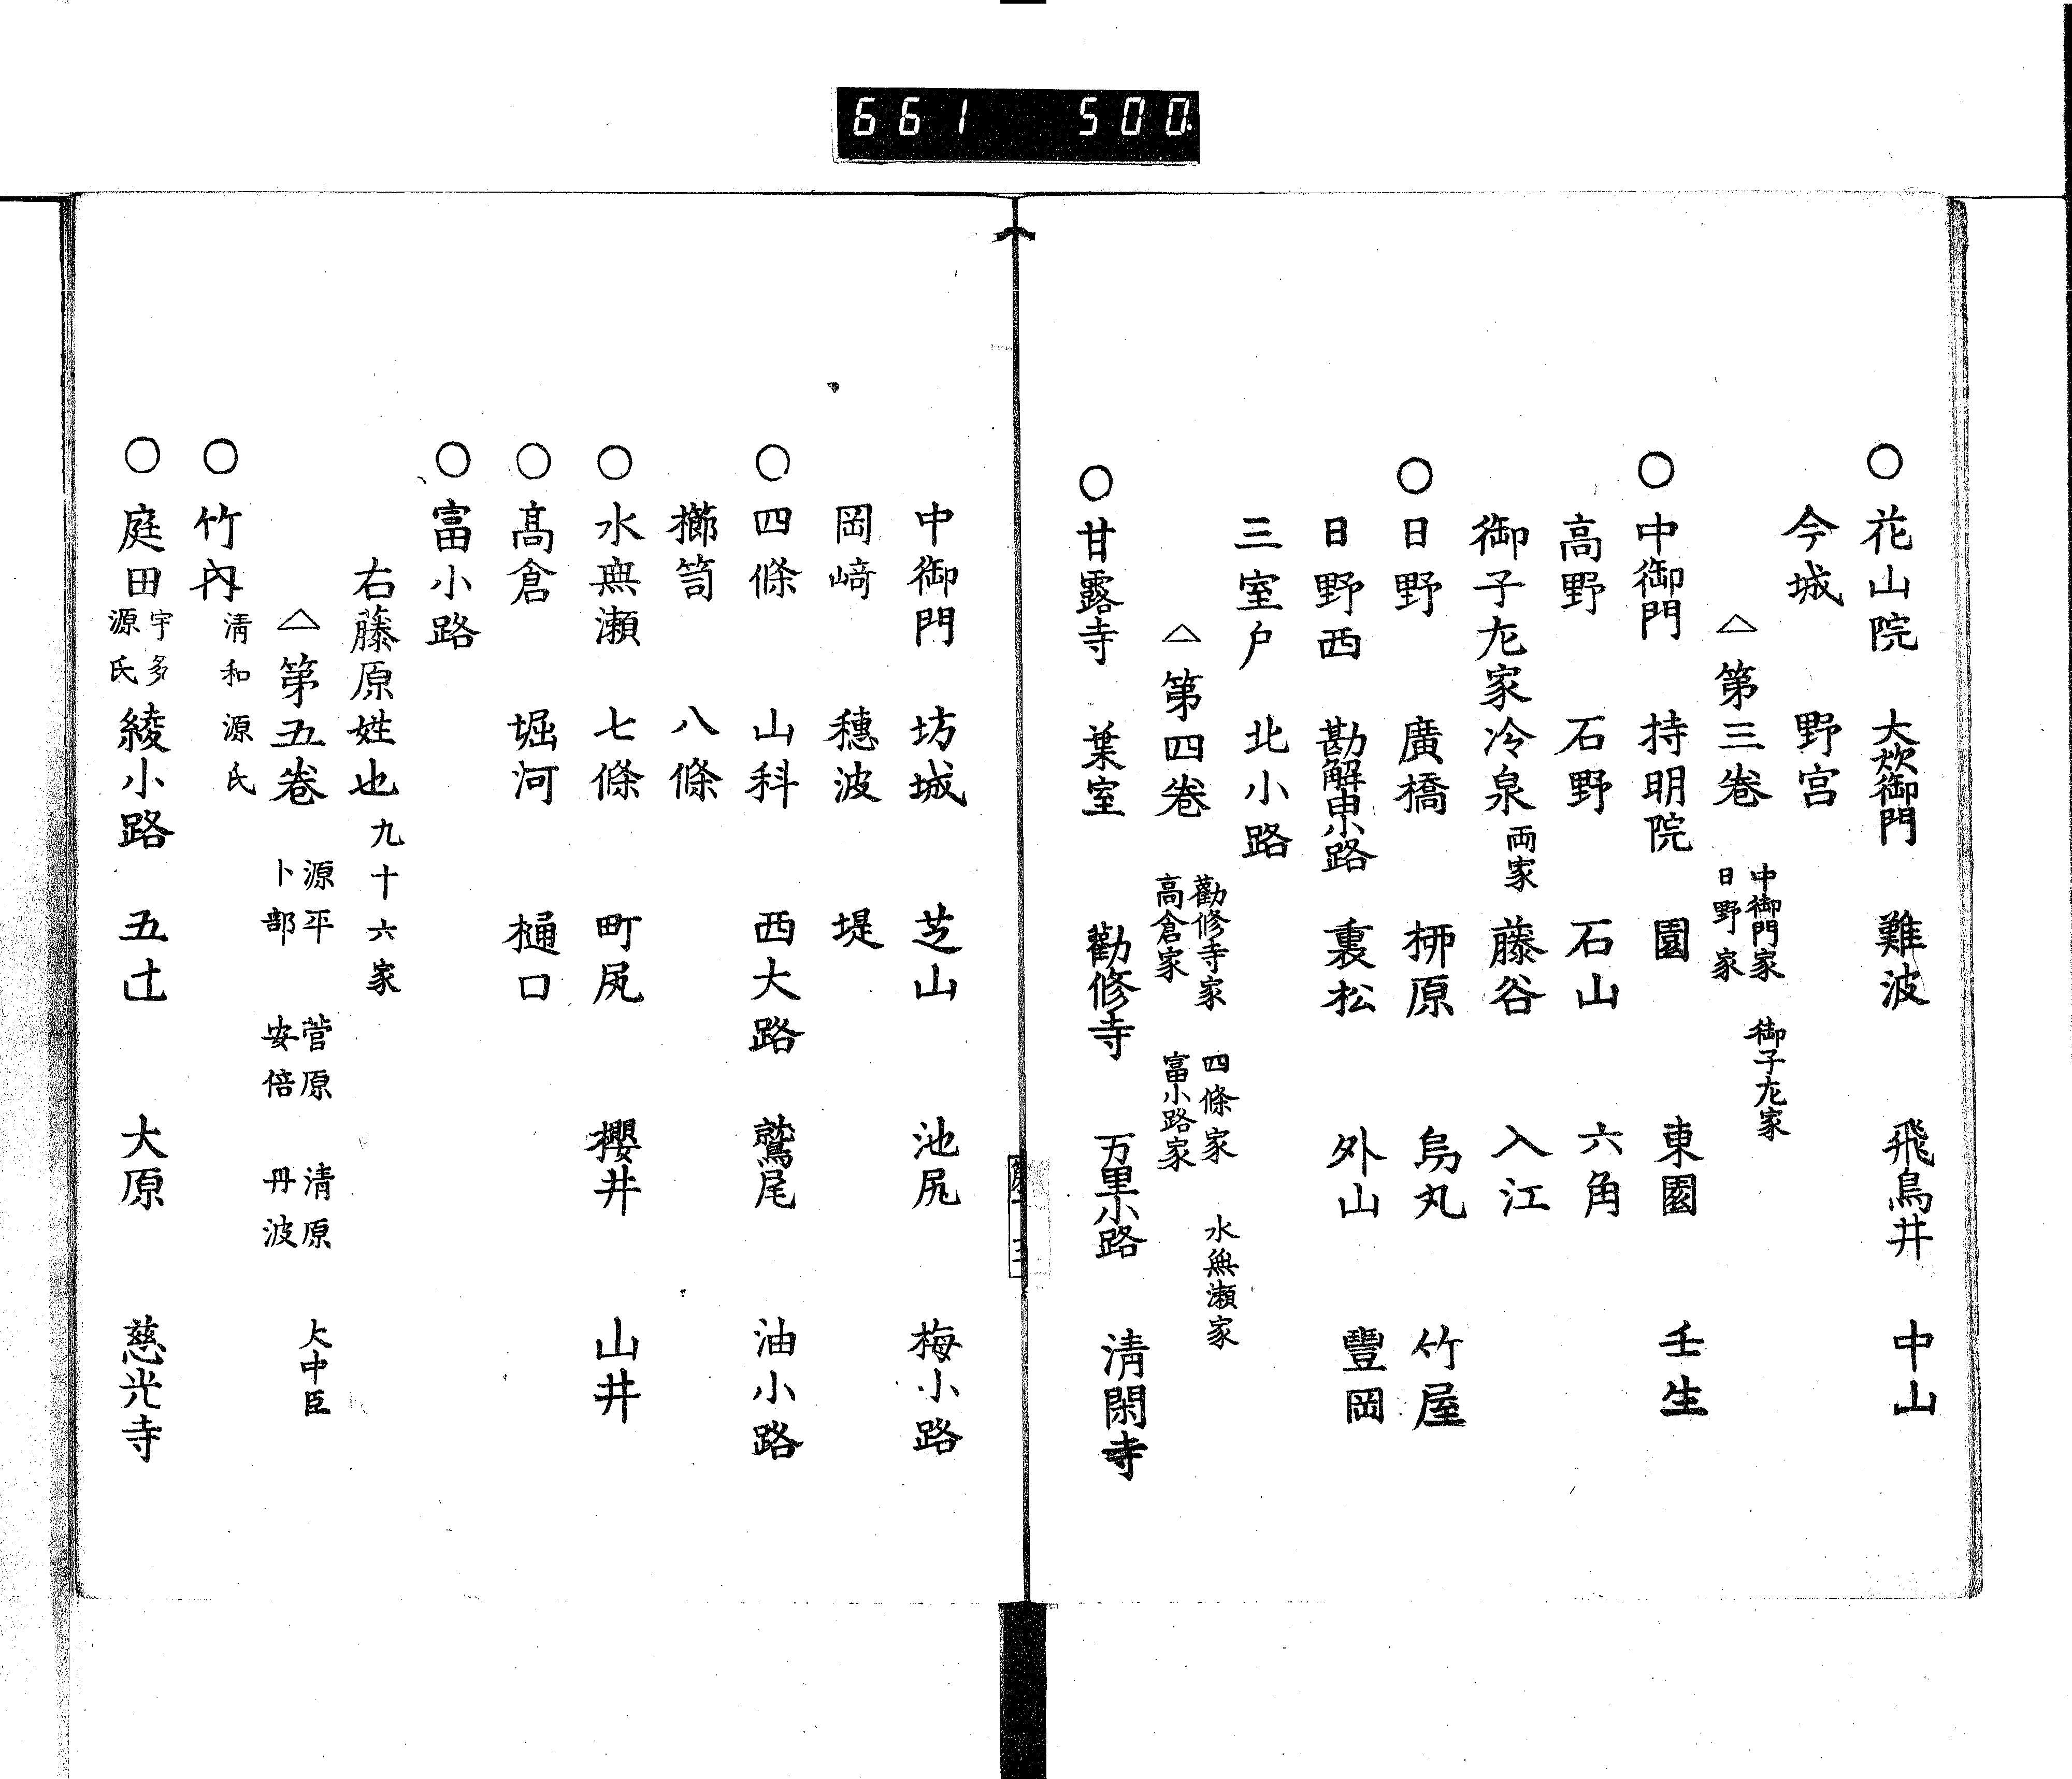 661 500.
○花山院 大炊御門 難波 飛鳥井 中山
今城 野宮
△第三巻 中御門家 御子左家
日野家
○中御門 持明院 園 東園 壬生
高野 石野 石山 六角
御子左家冷泉両家 藤谷 入江
○日野 廣橋 栁原 烏丸 竹屋
日野西 勘解由小路 裏松 外山 豐岡
三室戸 北小路
△第四巻 勸修寺家 四條家 水無瀬家
高倉家 富小路家
○甘露寺 葉室 勸修寺 万里小路 清閑寺
中御門 坊城 芝山 池尻 梅小路
岡﨑 穗波 堤
○四條 山科 西大路 鷲尾 油小路
櫛笥 八條
○水無瀬 七條 町尻 櫻井 山井
○髙倉 堀河 樋口
○富小路
右藤原姓也 九十六家
△第五巻 源平 菅原 清原 大中臣
卜部 安倍 丹波
○竹内 清和源氏
○庭田 宇多源氏 綾小路 五辻 大原 慈光寺